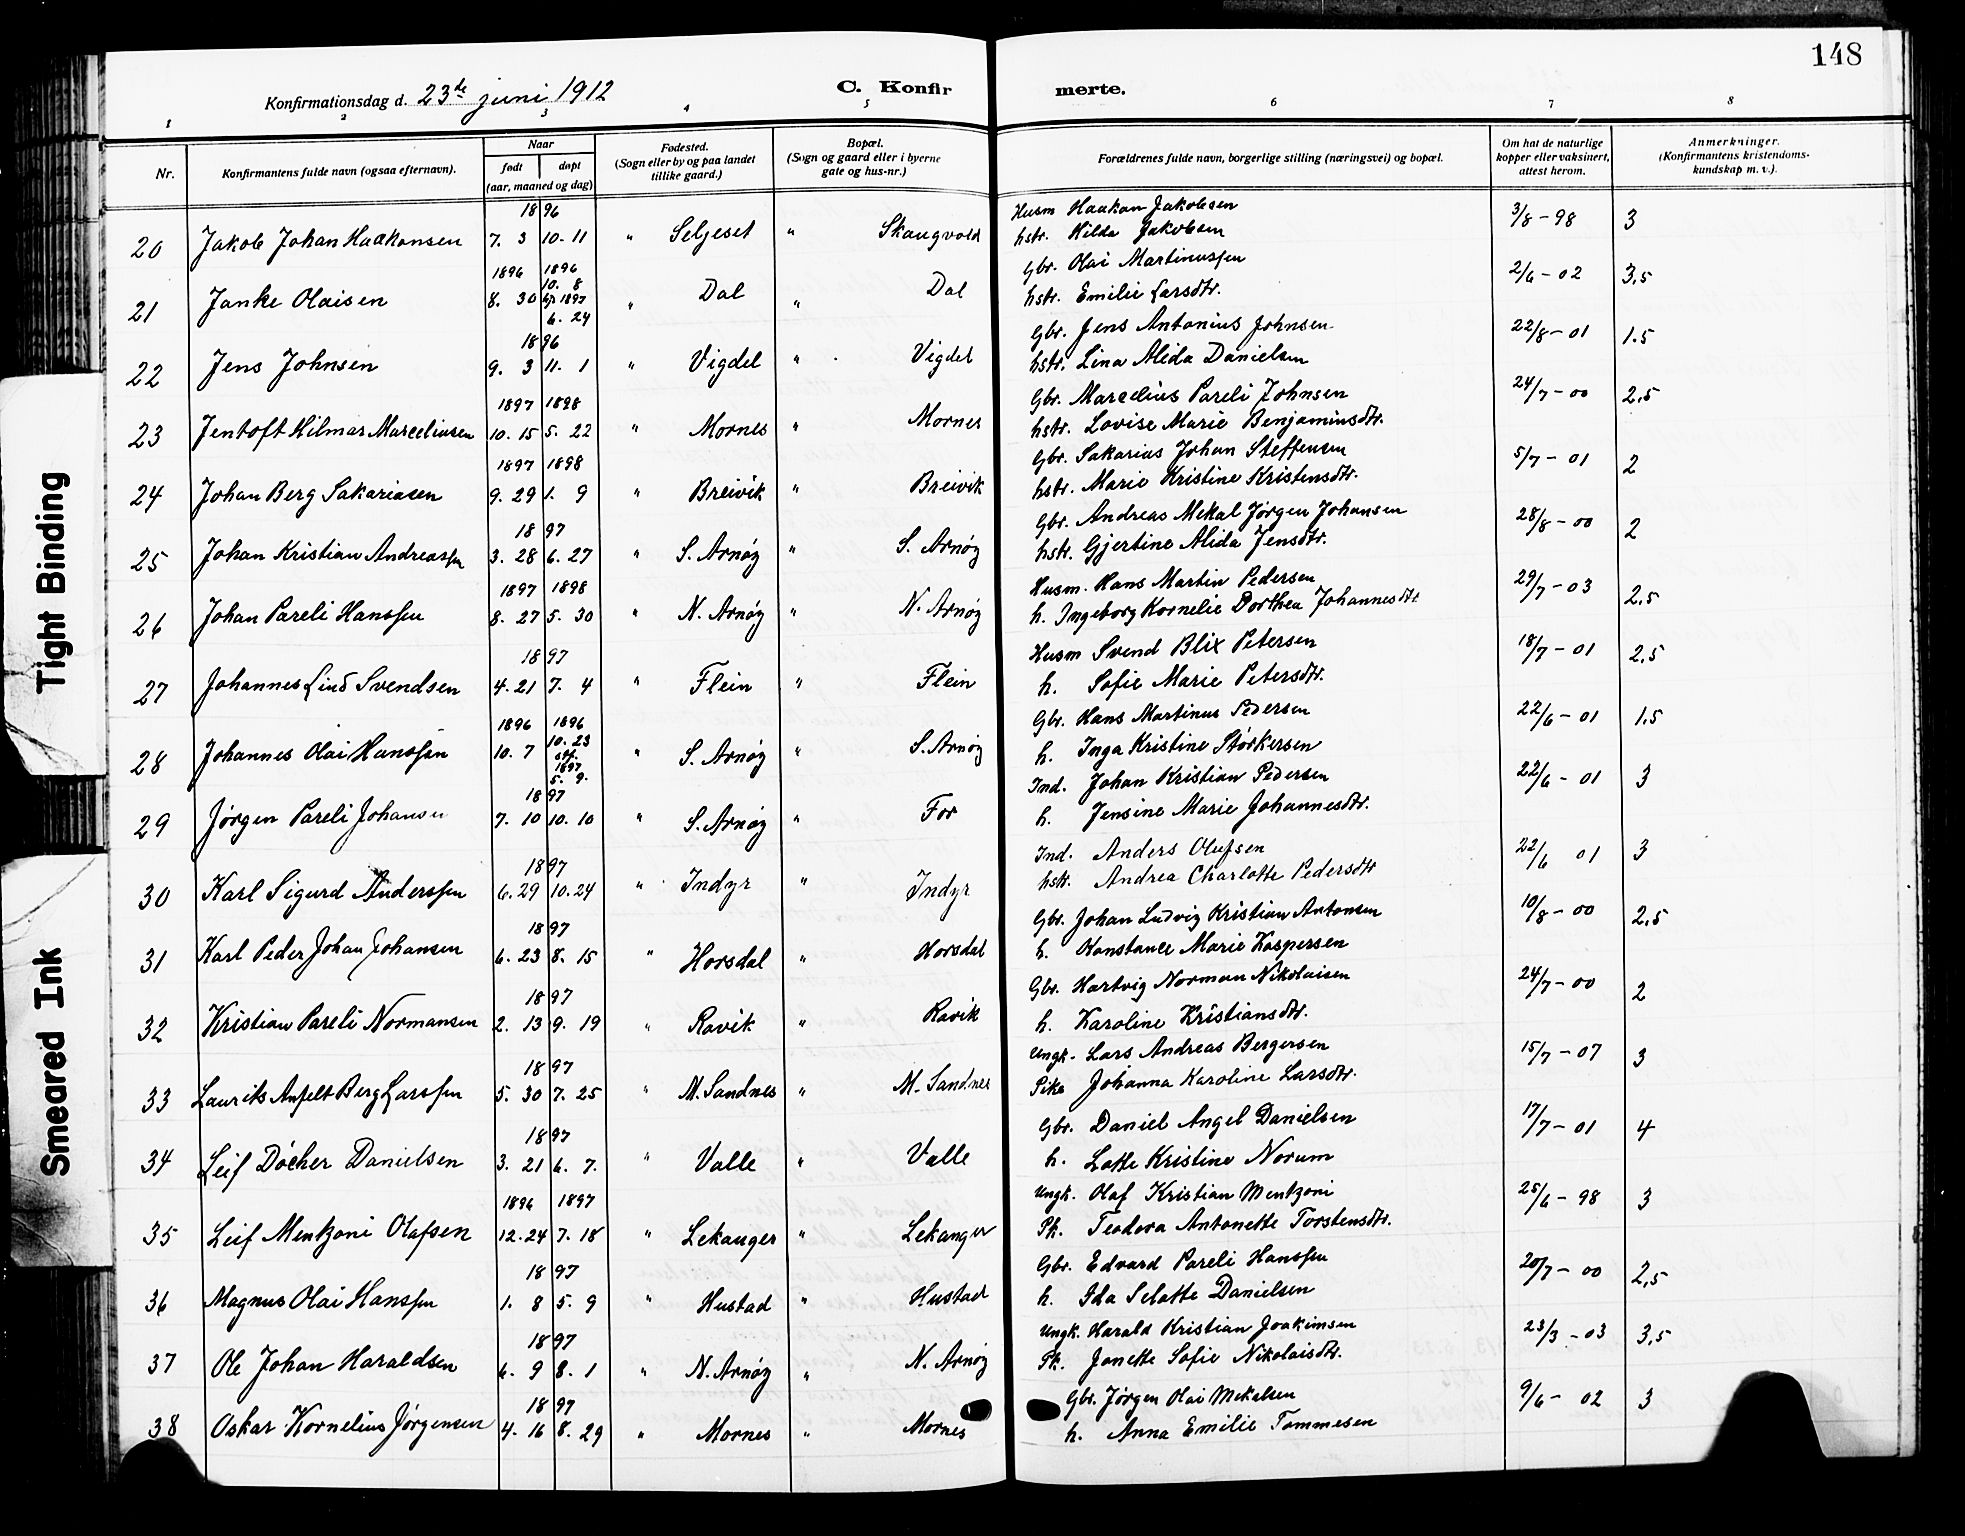 148
Konfirmationsdag d. 23de juni 1912 C. Konfir merte.
1 2 3 4 5 6 7 8
Nr. Konfirmantens fulde navn (ogsaa efternavn). Naar født døpt (aar, maaned og dag) Fødested. (Sogn eller by og paa landet tillike gaard.) Bopæl. (Sogn og gaard eller i byerne gate og hus-nr.) Forældrenes fulde navn, borgerlige stilling (næringsvei) og bopæl. Om hat de naturlige kopper eller vaksinert, attest herom. Anmerkninger. (Konfirmantens kristendoms-kundskap m. v.).
20 Jakob Johan Haakonsen 1896 7. 3 10. 11 " Seljeset " Skaugvold Husm Haakon Jakobsen hstr. Hilda Jakobsen 3/8 - 98 3
21 Janke Olaisen 1896 8. 30 1896 10. 8 1897 6. 24 " Dal " Dal Gbr. Olai Martinussen hstr. Emilie Larsdtr. 2/6 - 02 3,5
22 Jens Johnsen 1896 9. 3 11. 1 " Vigdel " Vigdel Gbr. Jens Antonius Johnsen hstr. Lina Alida Danielsen 22/8 - 01 1.5
23 Jentoft Hilmar Marceliusen 1897 10. 15 1898 5. 22 " Mornes " Mornes Gbr. Marcelius Pareli Johnsen hstr. Lovise Marie Benjaminsdtr. 24/7 - 00 2,5
24 Johan Berg Sakariasen 1897 9. 29 1898 1. 9 " Breivik " Breivik Gbr. Sakarias Johan Steffensen hstr. Marie Kristine Kristensdtr. 5/7 - 01 2
25 Johan Kristian Andreassen 1897 3. 28 6. 27 " S. Arnøy " S. Arnøy Gbr. Andreas Mekal Jørgen Johansen hstr. Gjertine Alida Jensdtr. 28/8 - 00 2
26 Johan Pareli Hanssen 1897 8. 27 1898 5. 30 " N. Arnøy " N. Arnøy Husm. Hans Martin Pedersen h. Ingeborg Kornelie Dorthea Johannesdtr 29/7 - 03 2,5
27 Johannes Lind Svendsen 1897 4. 21 7. 4 " Flein " Flein Husm Svend Blix Petersen h. Sofie Marie Petersdtr. 18/7 - 01 2,5
28 Johannes Olai Hanssen 1896 10. 7 1896 10. 23 1897 5. 9. " S. Arnøy " S. Arnøy Gbr. Hans Martinus Pedersen h. Inga Kristine Størkersen 22/6 - 01 1,5
29 Jørgen Pareli Johansen 1897 7. 10 10. 10 " S. Arnøy " For Ind. Johan Kristian Pedersen h. Jensine Marie Johannesdtr. 22/6 - 01 3
30 Karl Sigurd Anderssen 1897 6. 29 10. 24 " Indyr " Indyr Ind. Anders Olufsen hstr. Andrea Charlotte Pedersdtr 22/6 01 3
31 Karl Peder Johan Johansen 1897 6. 23 8. 15 " Horsdal " Horsdal Gbr. Johan Ludvig Kristian Antonsen h. Konstance Marie Kaspersen 10/8 - 00 2,5
32 Kristian Pareli Normansen 1897 2. 13 9. 19 " Ravik " Ravik Gbr. Hartvig Norman Nikolaisen h. Karoline Kristiansdtr. 24/7 - 00 2
33 Laurits Anfelt Berg Larssen 1897 5. 30 7. 25 " M. Sandnes " M. Sandnes Ungk. Lars Andreas Bergersen Pike Johanna Karoline Larsdtr. 15/7 - 07 3
34 Leif Döcher Danielsen 1897 3. 21 6. 7. " Valle " Valle Gbr. Daniel Angel Danielsen h. Lotte Kristine Norum 17/7 - 01 4
35 Leif Mentzoni Olafsen 1896 12. 24 1897 7. 18 " Lekanger " Lekanger Ungk. Olaf Kristian Mentzoni Pk. Teodora Antonette Torstensdtr. 25/6 - 98 3
36 Magnus Olai Hanssen 1897 1. 8 5. 9 " Hustad " Hustad Gbr. Edvard Pareli Hanssen h. Ida Selotte Danielsen 20/7 - 00 2,5
37 Ole Johan Haraldsen 1897 6. 9 8. 1 " N. Arnøy " N. Arnøy Ungk. Harald Kristian Joakimsen Pk. Janette Sofie Nikolaisdtr. 23/3 - 03 3,5
38 Oskar Kornelius Jørgensen 1897 4. 16 8. 29 " Mornes " Mornes Gbr. Jørgen Olai Mekalsen h. Anna Emilie Tommesen 9/6 - 02 3
Tight Binding
Smeared Ink